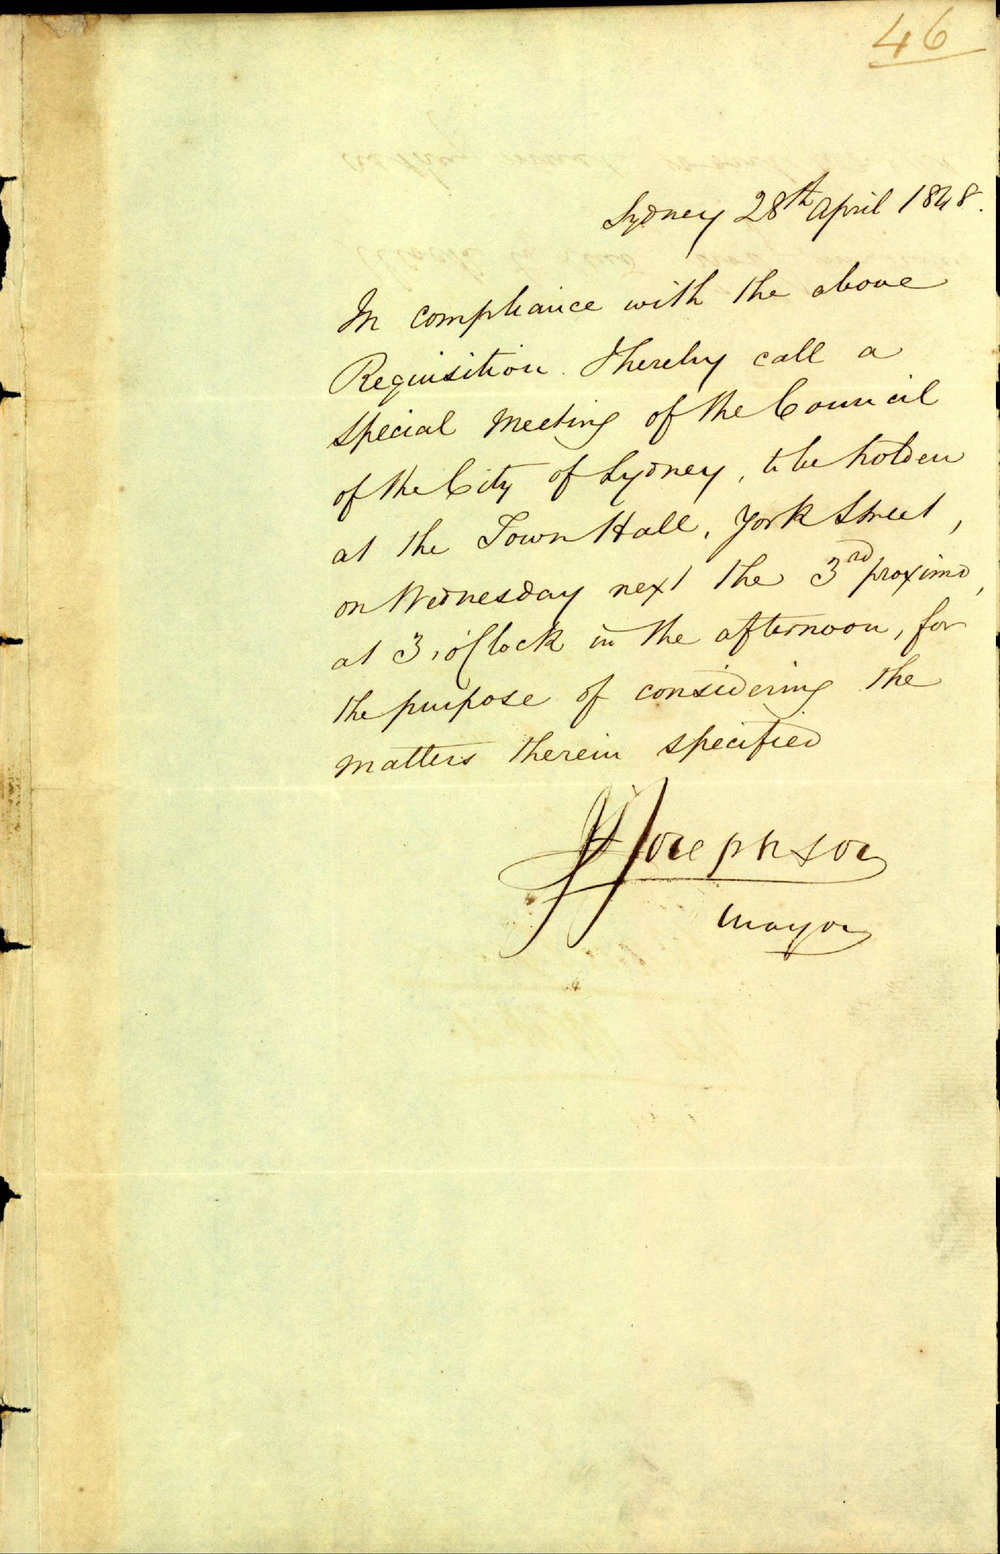 46
Sydney 28th April 1848.
In compliance with the above
Requisition. I hereby call a
special Meeting of the Council
of the City of Sydney, to be holden
at the Town Hall, York Street,
on Wednesday next the 3rd proximo,
at 3,o'Clock in the afternoon, for
the purpose of considering the
matters therein specified
Josephson
Mayor